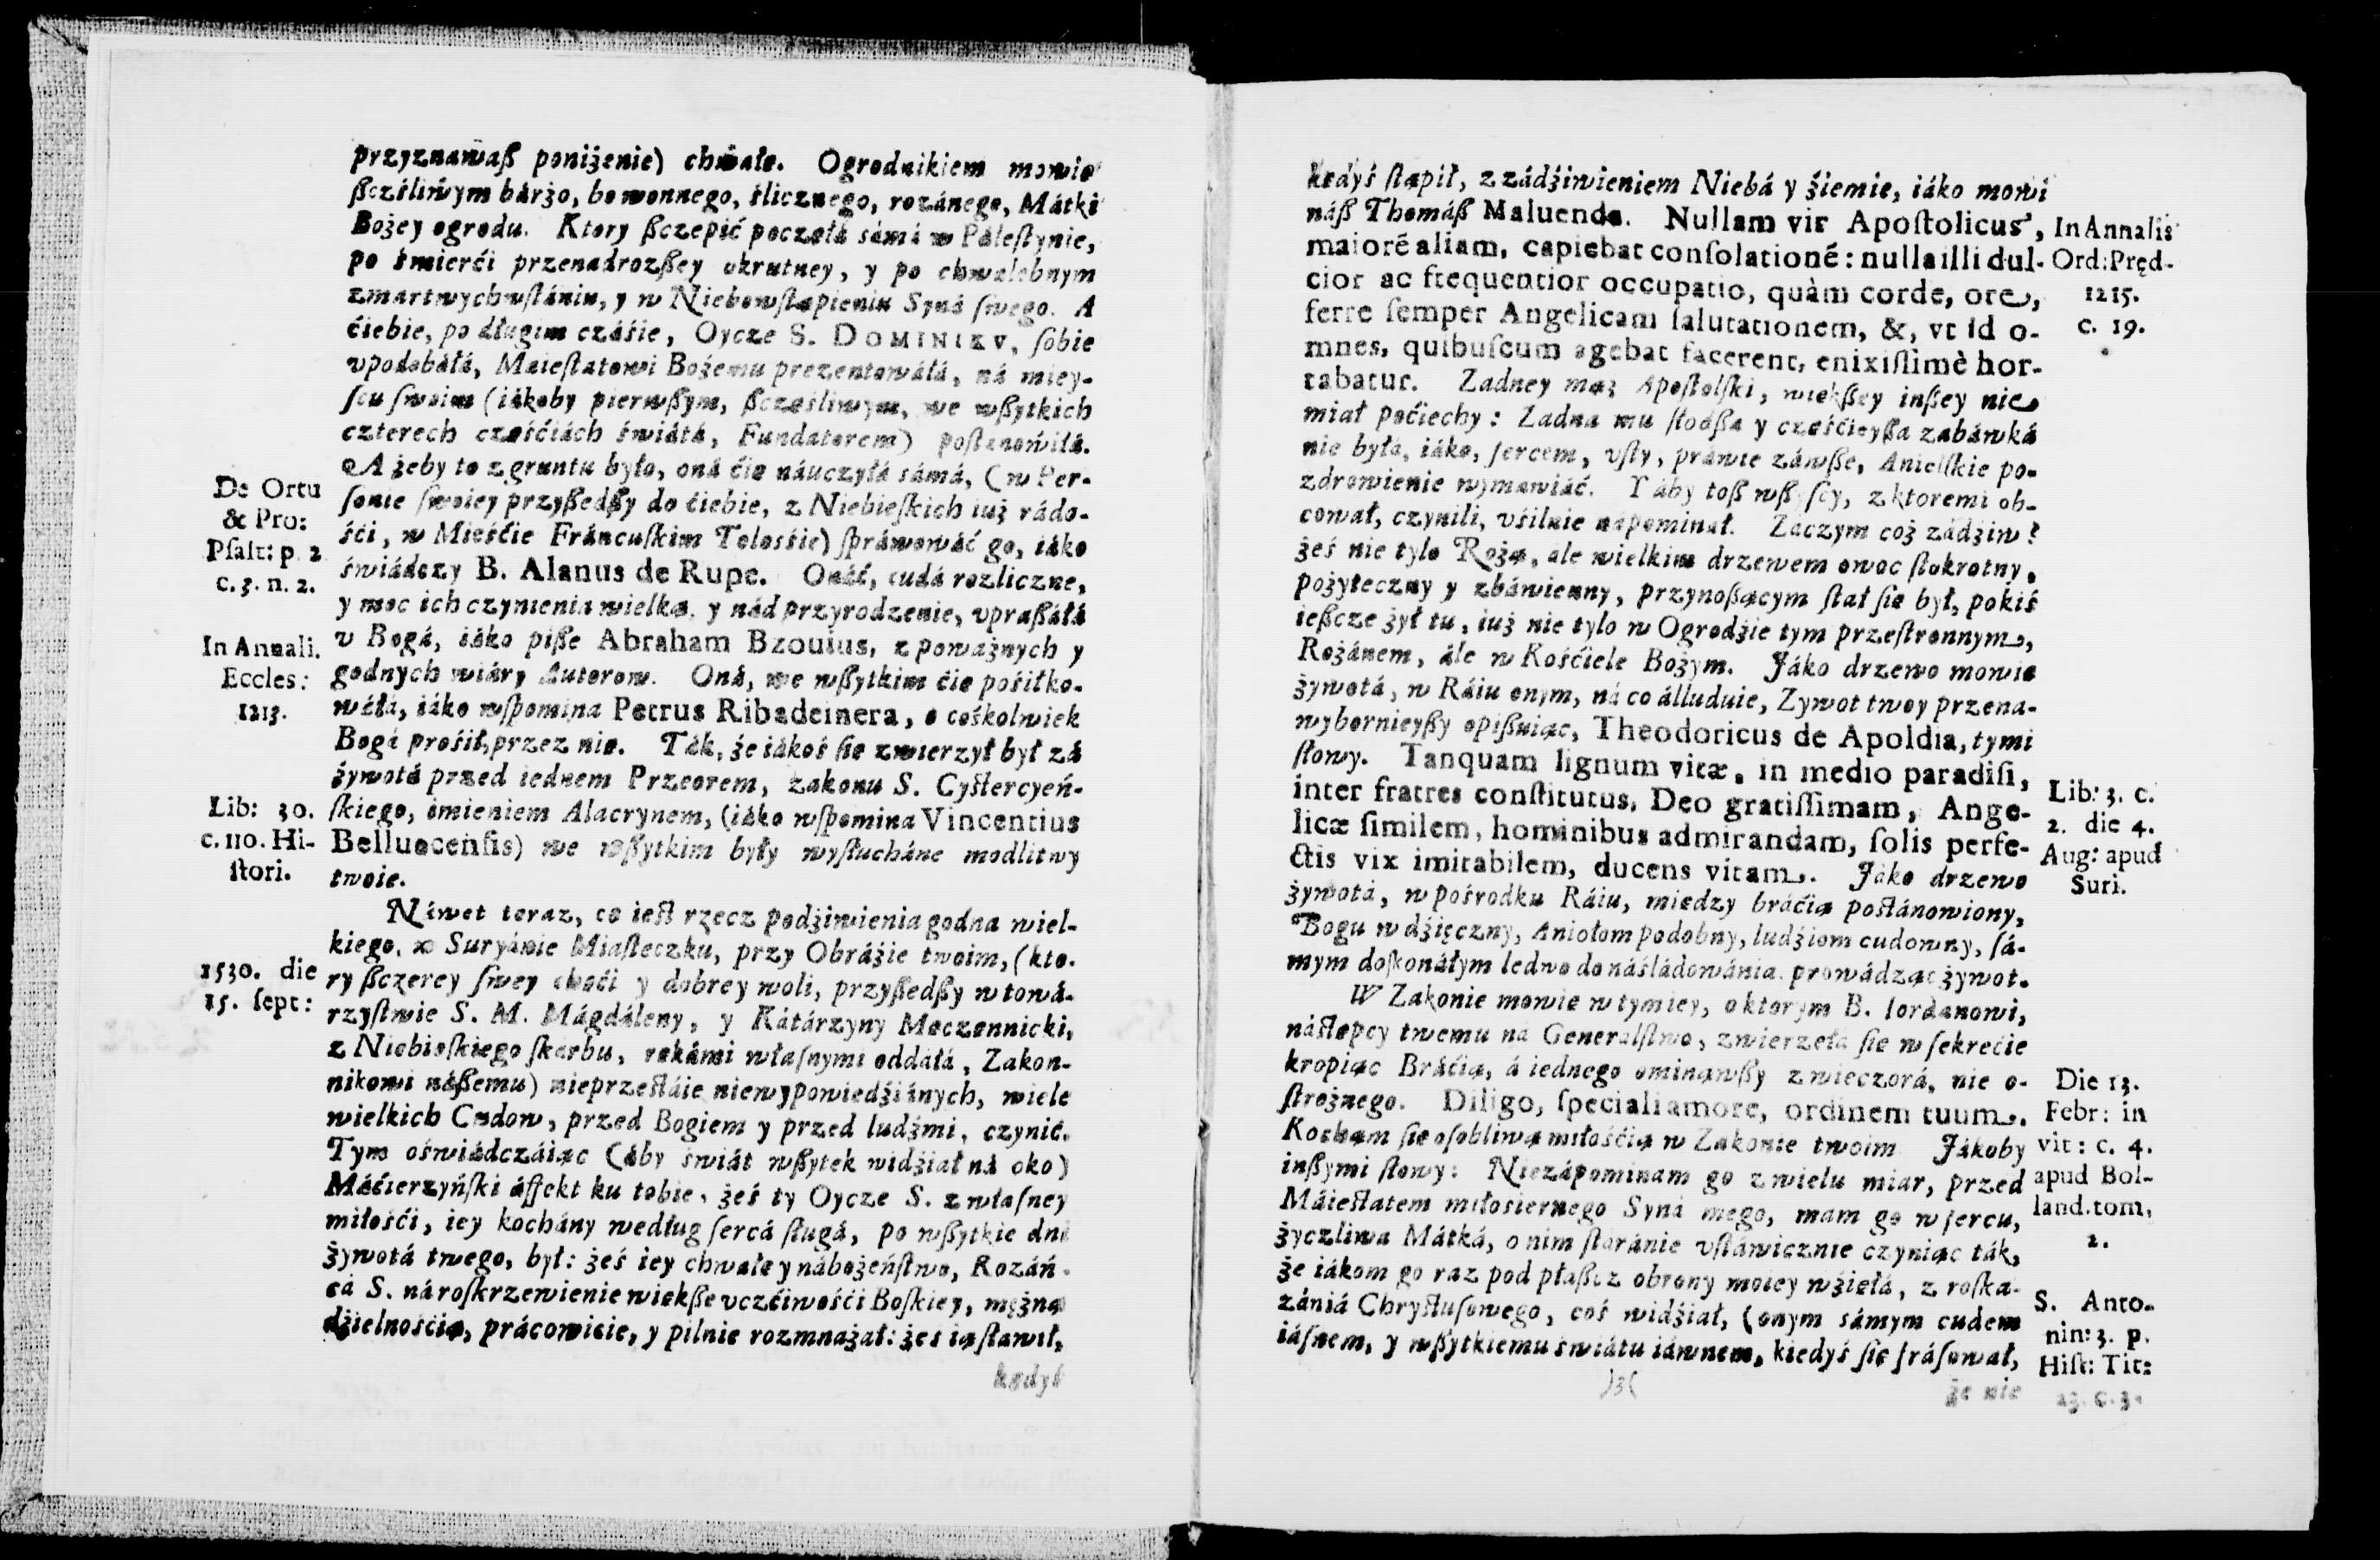 przyznawaß poniżenie) chwałę. Ogrodnikiem mowię
ßczśliwym bárżo, bo wonnego, ślicznego, rozánego, Mátki
Bożey ogrodu. Ktory ßczepić poczęłá sámá w Páleſtynie,
po śmierći przenadrozßey okrutney, y po chwalebnym
zmartwychwſtániu, y w Niebowſtąpieniu Syná ſwego. A
ćiebie, po długim czáśie, Oycze S. DOMINIKV, ſobie
vpodobáłá, Maieſtatowi Bożemu prezentowáłá, ná miey-
ſcu ſwoim (iákoby pierwßym, ßczęśliwym, we wßytkich
czterech częśćiách świátá, Fundatorem) poſtanowiłá.
A żeby to z gruntu było, oná ćię náuczyłá sámá, (w Per-
ſonie ſwoiey przyßedßy do ćiebie, z Niebieſkich iuż rádo-
śći, w Mieśćie Fráncuſkim Tolośśie) ſpráwowáć go, iáko
świádczy B. Alanus de Rupe. Onáć, cudá rozliczne,
y moc ich czynienia wielką, y nád przyrodzenie, vpraßáłá
v Bogá, iáko piße Abraham Bzouius, z poważnych y
godnych wiáry Autorow. Oná, we wßytkim ćię pośiłko-
wáłá, iáko wſpomina Petrus Ribadeinera, o cośkolwiek
Bogá prośił, przez nię. Ták, że iákoś ſię zwierzył był zá
żywotá przed iednem Przeorem, zakonu S. Cyſtercyeń-
ſkiego, imieniem Alacrynem, (iáko wſpomina Vincentius
Belluocenſis) we wßytkim były wyſłucháne modlitwy
twoie.
Náwet teraz, co ieſt rzecz podżiwienia godna wiel-
kiego, w Suryánie Miaſteczku, przy Obráźie twoim, (kto-
ry ßczerey ſwey chęći y dobrey woli, przyßedßy w towá-
rzyſtwie S. M. Mágdáleny, y Kátárzyny Męczennicki,
z Niebieſkiego ſkarbu, rękámi właſnymi oddáłá, Zakon-
nikowi náßemu) nieprzeſtáie niewypowiedźiánych, wiele
wielkich Cudow, przed Bogiem y przed ludźmi, czynić.
Tym oświádczáiąc (áby świát wßytek widźiał ná oko)
Máćierzyńſki áffekt ku tobie, żeś ty Oycze S. z właſney
miłośći, iey kochány według ſercá ſługá, po wßytkie dni
żywotá twego, był: żeś iey chwałę y nábożeńſtwo, Rozáń-
cá S. ná roſkrzewienie więkße vczćiwośći Boſkiey, mężną
dżielnośćią, prácowicie, y pilnie rozmnażał: żeś ią ſtawił,
kędyś
De Ortu
& Pro:
Pſalt: p. 2
c. 3. n. 2.
In Annali.
Eccles:
1213.
Lib: 30.
c. 110. Hi-
ſtori.
1530. die
15. ſept:
kędyś ſtąpił, z zádźiwieniem Niebá y źiemie, iáko mowi
náß Thomáß Maluenda. Nullam vir Apoſtolicus,
maiorẽ aliam, capiebat conſolationẽ: nulla illi dul-
cior ac frequentior occupatio, quàm corde, ore,
ferre ſemper Angelicam ſalutationem, &, vt id o-
mnes, quibuſcum agebat facerent, enixiſſimè hor-
tabatur. Zadney mąż Apoſtolſki, więkßey inßey nie
miał poćiechy: Zadna mu ſłodßa y częśćieyßa zabáwká
nie byłá, iáko, ſercem, vſty, práwie záwße, Anielſkie po-
zdrowienie wymawiáć. Y áby toß wßyſcy, z ktoremi ob-
cował, czynili, vśilnie nápominał. Záczym coż zádźiw?
żeś nie tylo Rożą, ale wielkim drzewem owoc ſtokrotny,
pożyteczny y zbáwienny, przynoßącym ſtał ſię był, pokiś
ießcze żył tu, iuż nie tylo w Ogrodźie tym przeſtronnym,
Rożánem, ále w Kośćiele Bożym. Jáko drzewo mowię
żywotá, w Ráiu onym, ná co álluduie, Zywot twoy przena-
wybornieyßy opißuiąc, Theodoricus de Apoldia, tymi
ſłowy. Tanquam lignum vitæ, in medio paradiſi,
inter fratres conſtitutus, Deo gratiſſimam, Ange-
licæ ſimilem, hominibus admirandam, ſolis perfe-
ctis vix imitabilem, ducens vitam. Jáko drzewo
żywotá, w pośrodku Ráiu, miedzy bráćią poſtánowiony,
Bogu wdźięczny, Aniołom podobny, ludźiom cudowny, ſá-
mym doſkonáłym ledwo do náśládowánia, prowádząc żywot.
W Zakonie mowię w tymiey, o ktorym B. Iordanowi,
náſtępcy twemu ná Generalſtwo, zwierzełá ſię w ſekrećie
kropiąc Bráćią, á iednego ominąwßy z wieczorá, nie o-
ſtrożnego. Diligo, ſpeciali amore, ordinem tuum.
Kocham ſię oſobliwą miłośćią w Zakonie twoim Jákoby
inßymi ſłowy: Niezápominam go z wielu miar, przed
Máieſtatem miłoſiernego Syná mego, mam go w ſercu,
życzliwa Mátká, o nim ſtáránie vſtáwicznie czyniąc ták,
że iákom go raz pod płaßcz obrony moiey wźięłá, z roſka-
zániá Chryſtuſowego, coś widźiał, (onym sámym cudem
iáſnem, y wßytkiemu światu iáwnem, kiedyś ſię fráſował,
)3(
że nie
In Annalis
Ord: Pręd.
1215.
c. 19.
Lib: 3. c.
2. die 4.
Aug: apud
Suri.
Die 13.
Febr: in
vit: c. 4.
apud Bol-
land. tom.
2.
S. Anto-
nin: 3. p.
Hiſt: Tit:
23. c. 3.